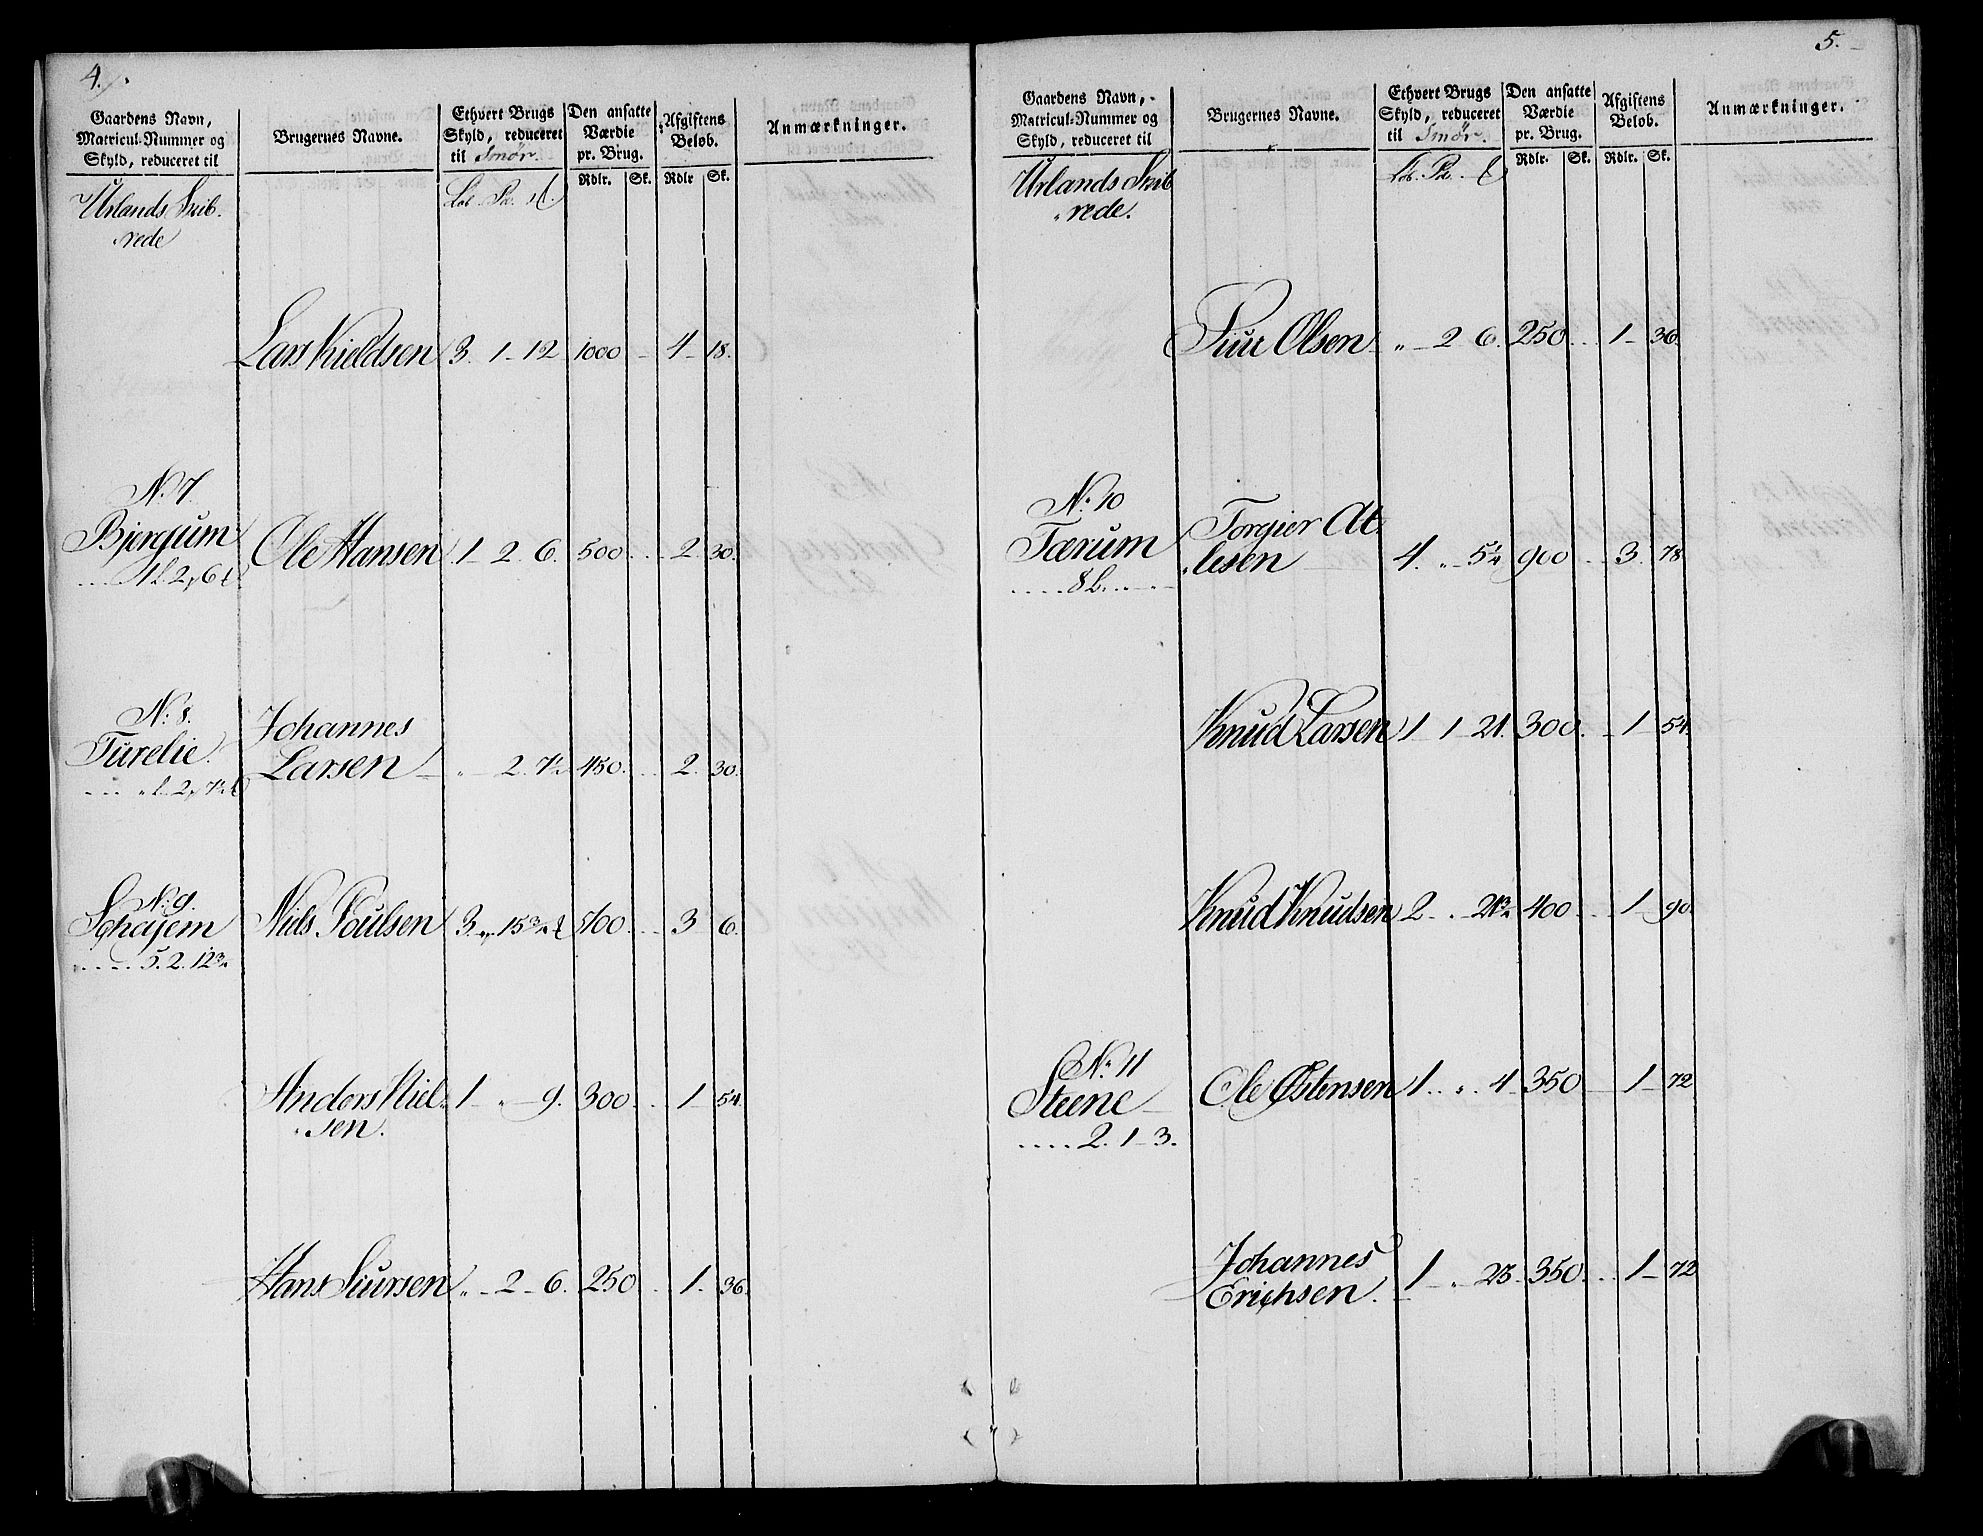 4.
Gaardens Navn, Matricul-Nummer og Skyld, reduceret til
Brugernes Navne.
Ethvert Brugs Skyld, reduceret til Smør.
Den ansatte Værdie pr. Brug.
Afgiftens Beløb.
Anmærkninger.
Rdlr. Sk. Rdlr Sk.
Urlands Skib-
rede
Lars Kieldsen 3. 1 - 12 1000 - 4 - 18.
No. 7
Bjergum Ole Hansen 1 - 2. 6. 500 2. 30.
No. 8.
Türelie Johannes
Larsen „ - 2. 7½ 450. 2. 30.
No. 9.
Niels Poulsen 3. „ 15¾ 500. 3 6.
5. 2. 12¾
Anders Niel-
sen. 1 - „ - 9. 300. 1 - 54.
Hans Siursen „ - 2 - 6. 250 1. 36.
5.
Gaardens Navn, Matricul-Nummer og Skyld, reduceret til
Brugernes Navne.
Ethvert Brugs Skyld, reduceret til Smør.
Den ansatte Værdie pr. Brug.
Afgiftens Beløb.
Anmærkninger.
Rdlr. Sk. Rdlr. Sk.
Urlands Skib-
rede.
Siur Olsen „ - 2 6. 250 1 - 36.
No. 10
Færum Torgier At-
lesen 4. „ - 5¼ 900 3. 78.
8 L.
Knud Larsen 1 - 1 - 21. 300. 1 - 54.
Knud Knudsen 2 400 1 - 90.
No. 11
Steene Ole Østensen 1 „ 4 350 1 - 72
2. 1 - 3.
Johannes
Erichsen. 1 - „ 23 350 1 - 72